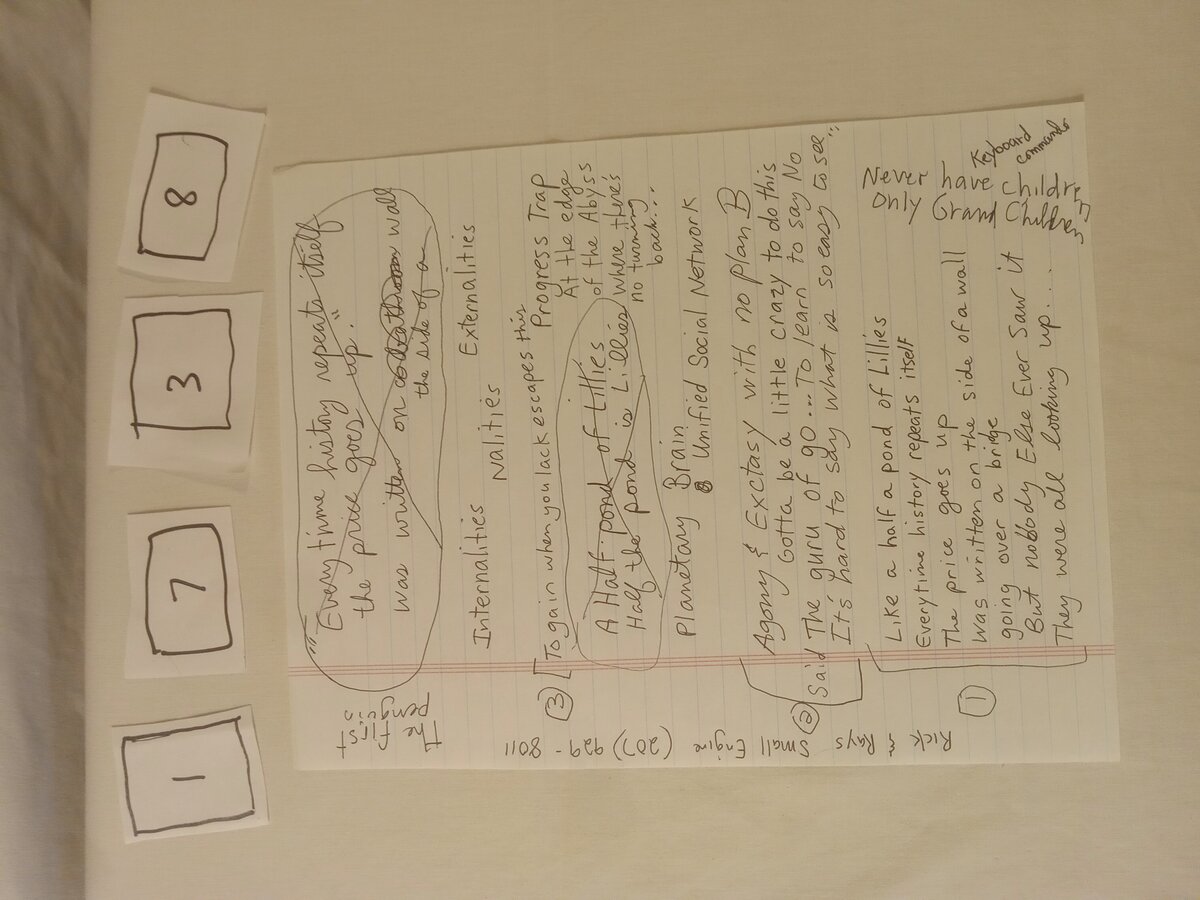 1
7
3
8
"" Every time history repeats itself
the price goes up."
was written on wall
the side of a
Internalities Externalities
Nalities
③ [To gain when you lack escapes this
Progress Trap
At the edge
of the Abyss
where there's
no turning
back...
A Half pond of Lillies
Half the pond is Lillies
Planetary Brain
Unified Social Network
Agony & Exctasy with no plan B
Gotta be a little crazy to do this
② Said The guru of go... To learn to say No
It's hard to say what is so easy to see...
Like a half a pond of Lillies
Everytime history repeats itself
The price goes up
① was written on the side of a wall
going over a bridge
But nobody Else Ever Saw it
They were all looking up....
Never have children
Only Grand Children
Keyboard
commands
The first
penguin
Rick Rays Small Engine (207) 929-8011